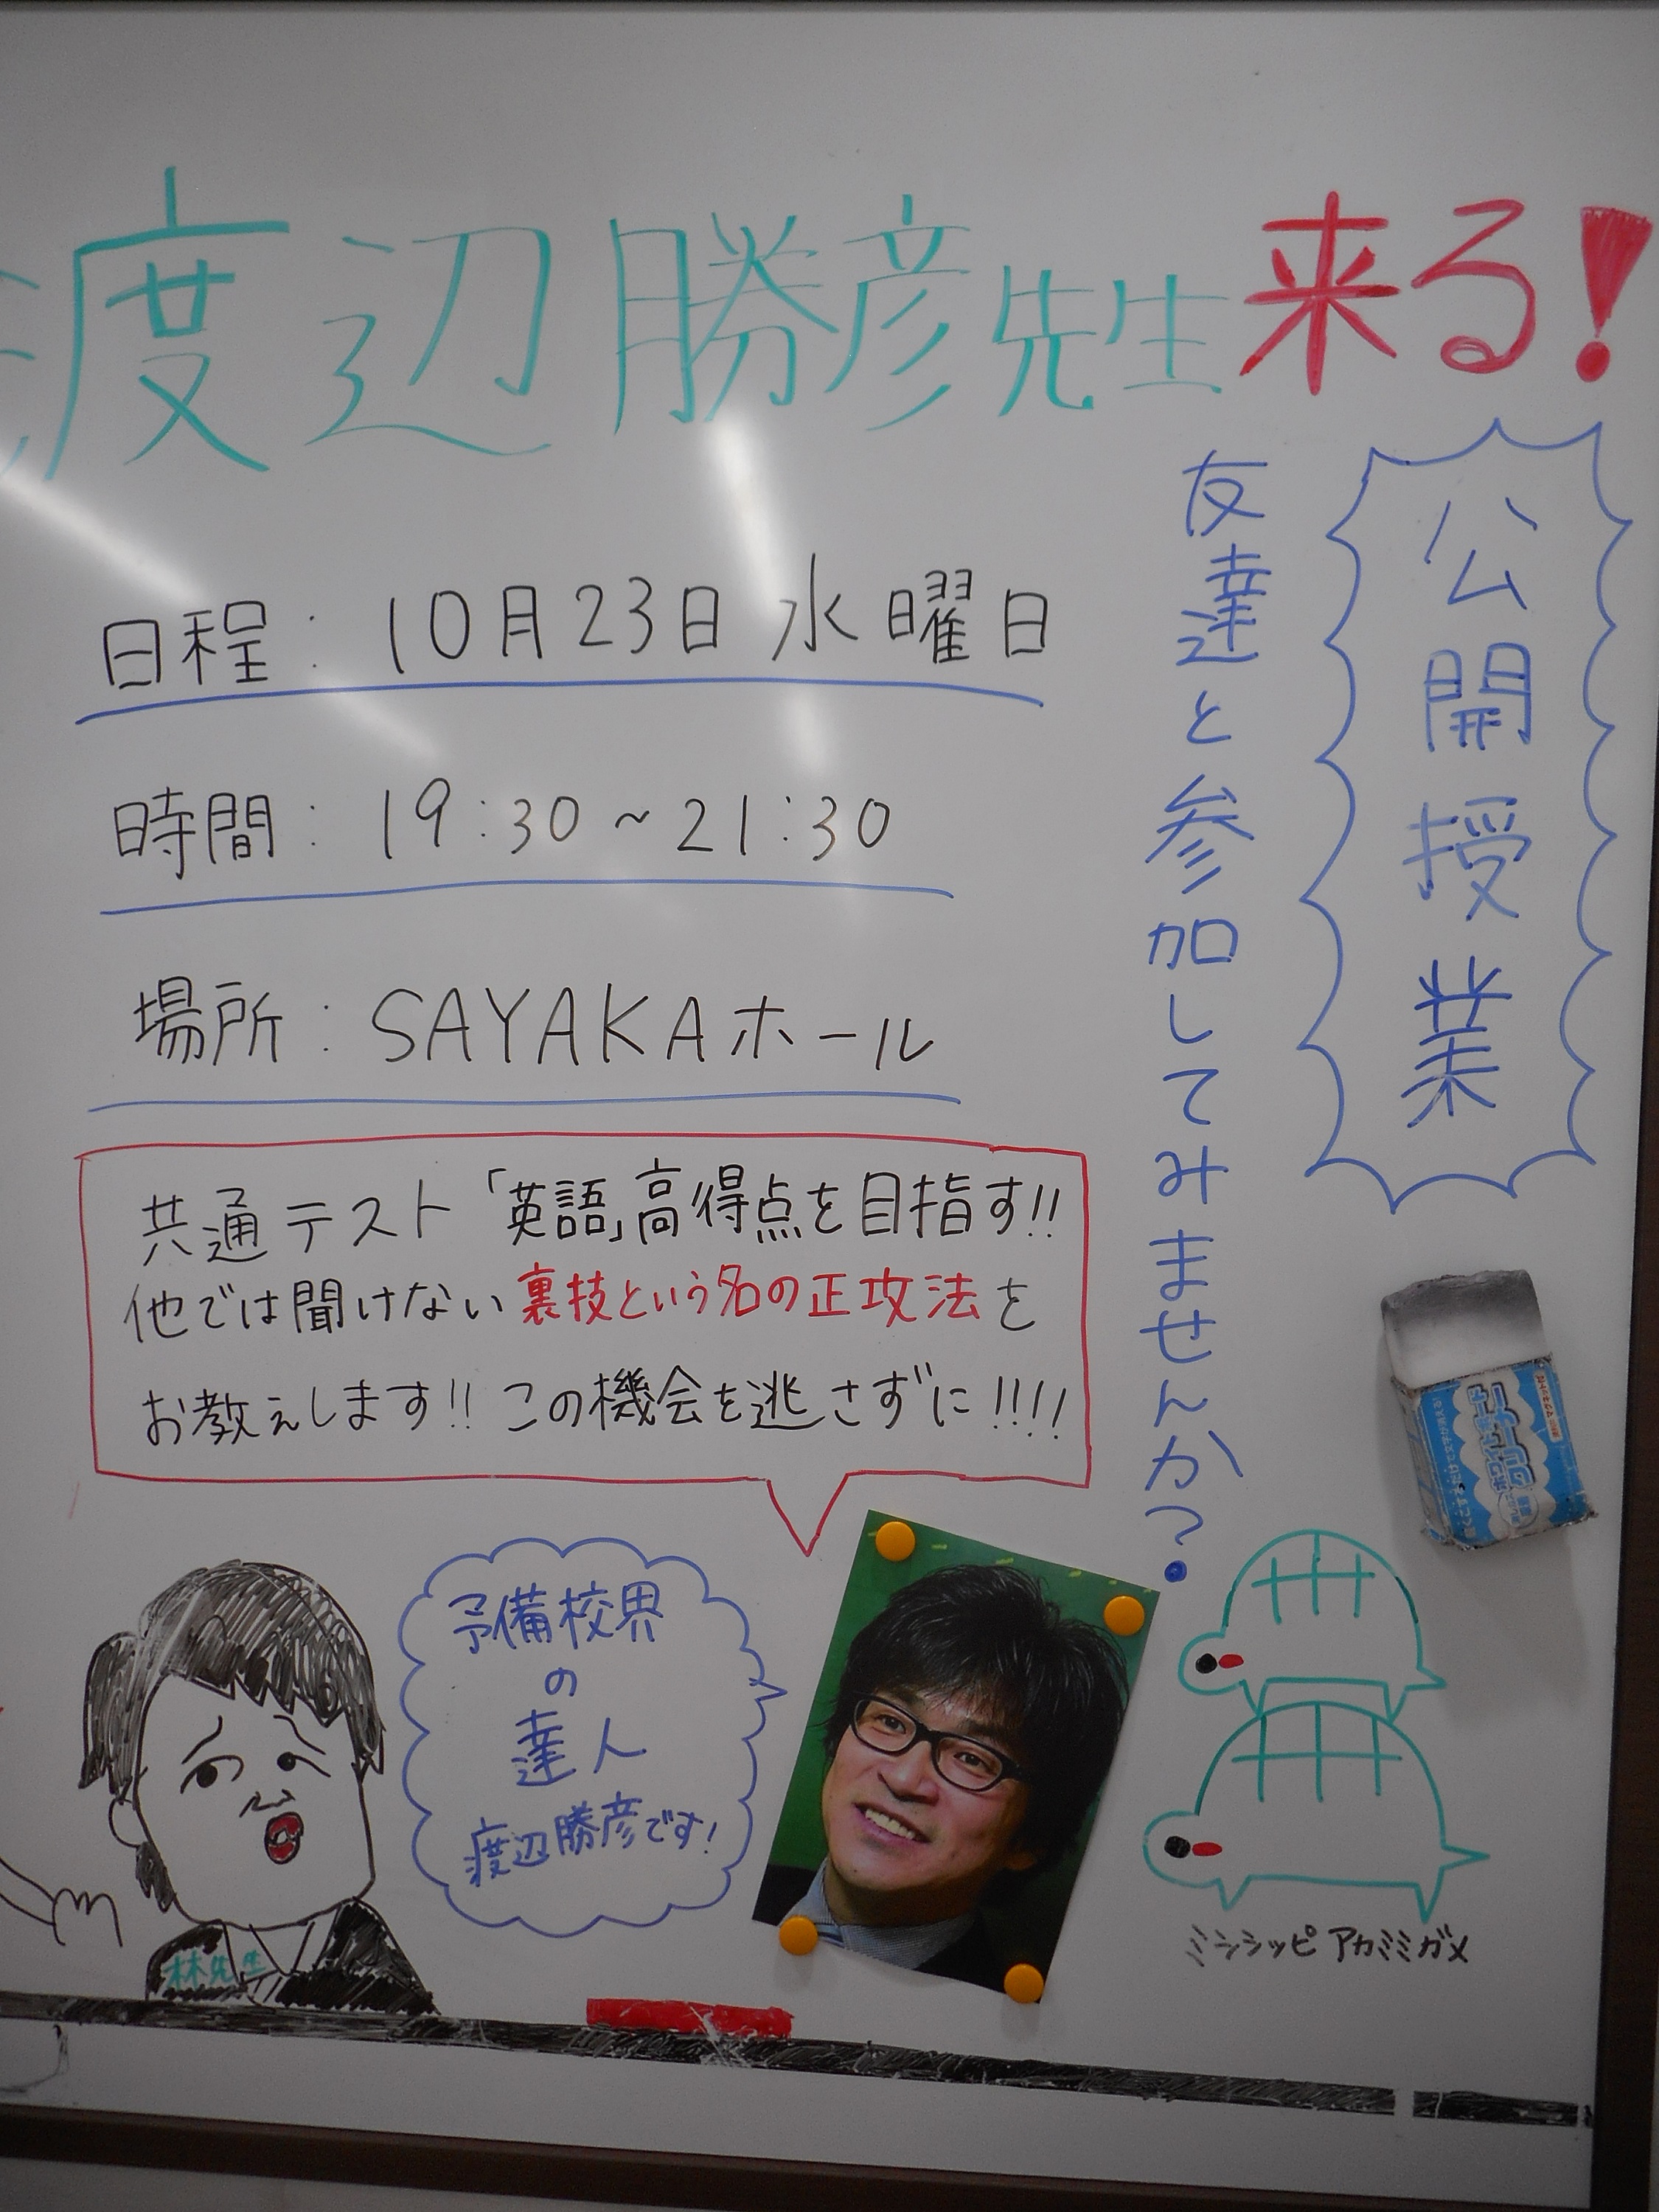 渡辺勝彦先生来る!
公開授業
友達と参加してみませんか?
日程: 10月23日 水曜日
時間: 19:30~21:30
場所: SAYAKAホール
共通テスト「英語」高得点を目指す!!
他では聞けない裏技という名の正攻法を
お教えします!! この機会を逃さずに!!!!
予備校界
の
達人
渡辺勝彦です!
林先生
ミシシッピアカミミガメ
ホワイトボード
クリーナー